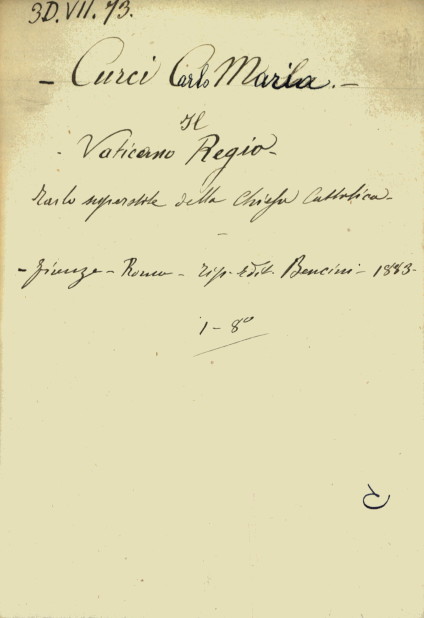 3D.VII.73.
- Curci Carlo Maria. -
Il
- Vaticano Regio -
tarlo superstite della Chiesa Cattolica -
-
- Firenze - Roma - tip. edit. Bencini - 1883 -
1 - 8º
C